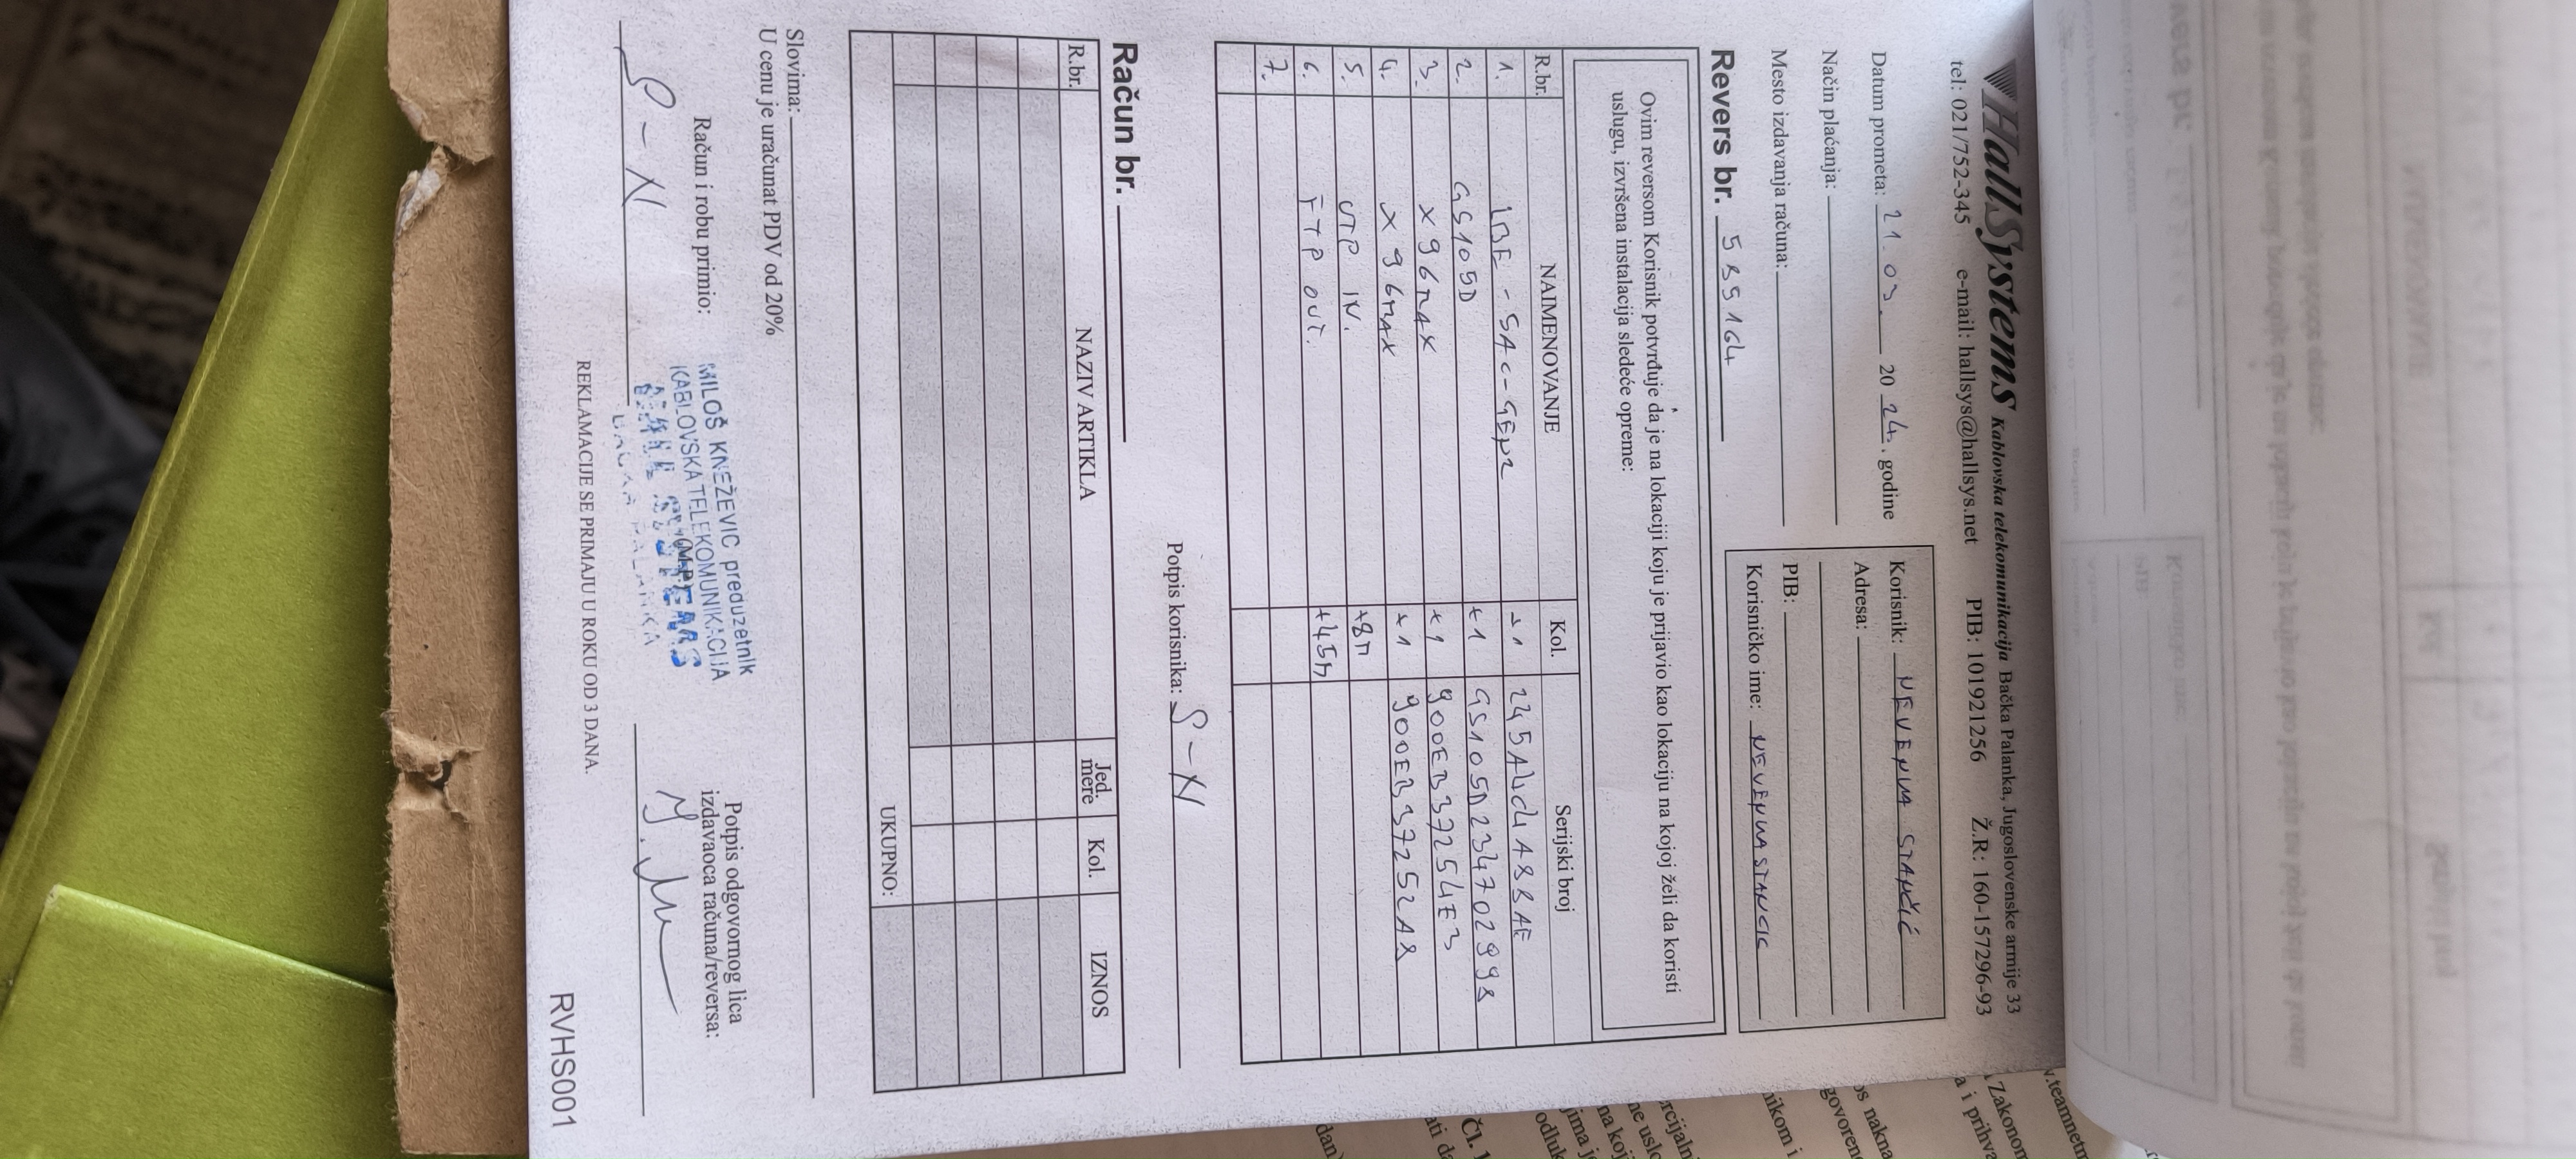 HallSystems Kablovska telekomunikacija Bačka Palanka, Jugoslovenske armije 33
tel: 021/752-345 e-mail: hallsys@hallsys.net PIB: 101921256 Ž.R: 160-157296-93
Datum prometa: 21.03. 20 24. godine
Način plaćanja:
Mesto izdavanja računa:
Korisnik: NEVENKA STANČIĆ
Adresa:
PIB:
Korisničko ime: NEVENKASTANCIC
Revers br. 585164
Ovim reversom Korisnik potvrđuje da je na lokaciji koju je prijavio kao lokaciju na kojoj želi da koristi
uslugu, izvršena instalacija sledeće opreme:
R.br. NAIMENOVANJE Kol. Serijski broj
1. LBE-5AC-GEN2 +1 245A4C4A88AE
2. GS105D +1 GS105D234702998
3. X96MAX +1 900EB37254E3
4. X96MAX +1 900EB37252A8
5. UTP IN. +8m
6. FTP OUT. +45m
7.
Potpis korisnika:
Račun br.
R.br. NAZIV ARTIKLA Jed. mere Kol. IZNOS
UKUPNO:
Slovima:
U cenu je uračunat PDV od 20%
Račun i robu primio:
MILOŠ KNEŽEVIĆ preduzetnik
KABLOVSKA TELEKOMUNIKACIJA
(M.P.)
BAČKA PALANKA
Potpis odgovornog lica
izdavaoca računa/reversa:
REKLAMACIJE SE PRIMAJU U ROKU OD 3 DANA.
RVHS001